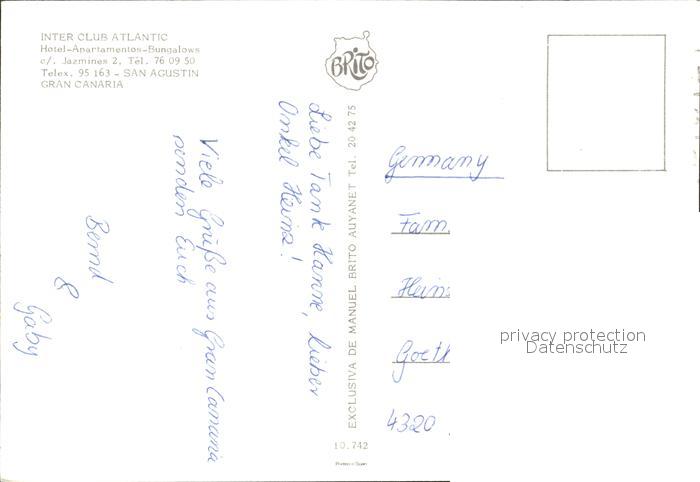 INTER CLUB ATLANTIC
Hotel-Apartamentos-Bungalows
c/. Jazmines 2, Tél. 76 09 50
Telex. 95 163 - SAN AGUSTIN
GRAN CANARIA
BRITO
Liebe Tante Hanne, lieber
Onkel Heinz!
Viele Grüße aus Gran Canaria
senden Euch
Bernd
&
Gaby
EXCLUSIVA DE MANUEL BRITO AUYANET Tel. 20 42 75
10.742
Printed in Spain
Germany
Fam.
Hein
Goeth
4320
privacy protection
Datenschutz